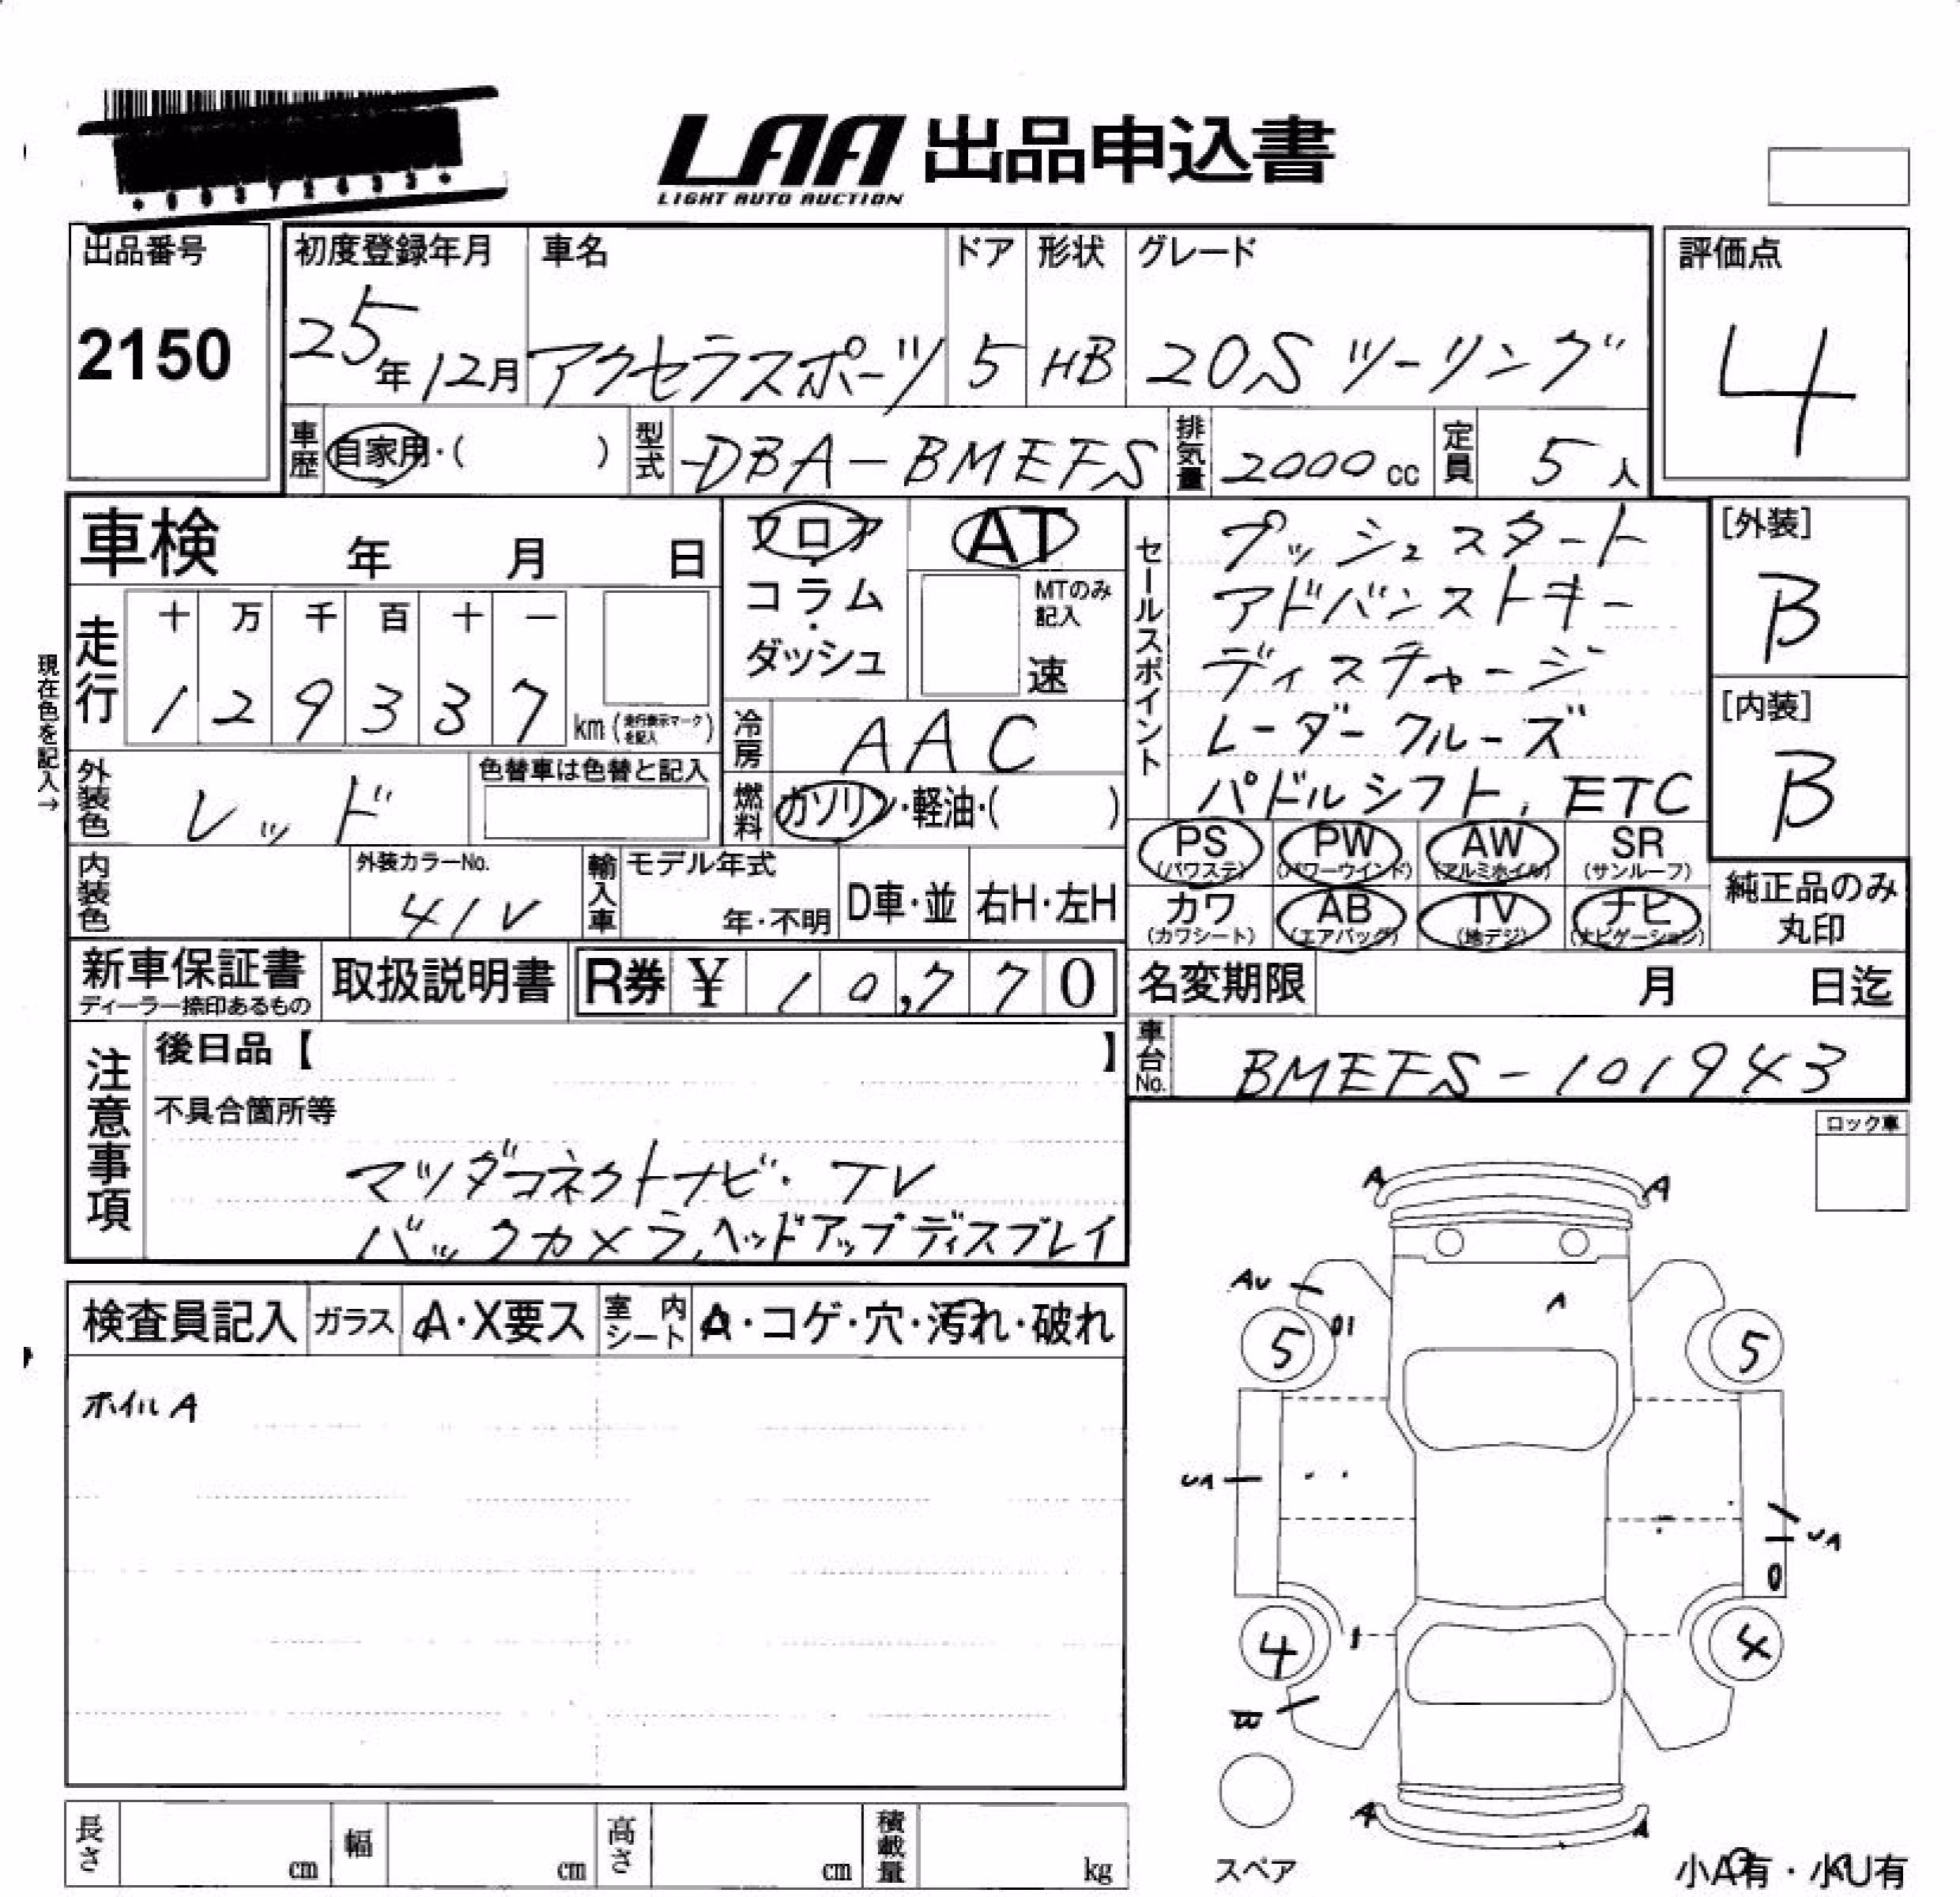 LAA 出品申込書
LIGHT AUTO AUCTION
出品番号
2150
初度登録年月
25年12月
車名
アクセラスポーツ
ドア
5
形状
HB
グレード
20S ツーリング
評価点
4
車歴
自家用・( )
型式
DBA-BMEFS
排気量
2000cc
定員
5人
車検 年 月 日
フロア
・
コラム
・
ダッシュ
AT
MTのみ記入
速
セールスポイント
プッシュスタート
アドバンストキー
ディスチャージ
レーダークルーズ
パドルシフト, ETC
[外装]
B
[内装]
B
走行
十 万 千 百 十 一
1 2 9 3 3 7 km (走行表示マークを記入)
現在色を記入→
冷房
AAC
外装色
レッド
色替車は色替と記入
燃料
ガソリン・軽油・( )
PS (パワステ) PW (パワーウインド) AW (アルミホイル) SR (サンルーフ)
カワ (カワシート) AB (エアバッグ) TV (地デジ) ナビ (ナビゲーション)
純正品のみ
丸印
内装色
外装カラーNo.
41V
輸入車
モデル年式
年・不明
D車・並
右H・左H
新車保証書
ディーラー捺印あるもの
取扱説明書
R券 ¥ 10,770
名変期限 月 日迄
車台No.
BMEFS-101943
注意事項
後日品【 】
不具合箇所等
マツダコネクトナビ・TV
バックカメラ,ヘッドアップディスプレイ
ロック車
検査員記入
ガラス
A・X要ス
室内シート
A・コゲ・穴・汚れ・破れ
ホイルA
A A
AU
A
5 5
UA
UA
4 4
A A
スペア
小A有・小U有
長さ cm
幅 cm
高さ cm
積載量 kg